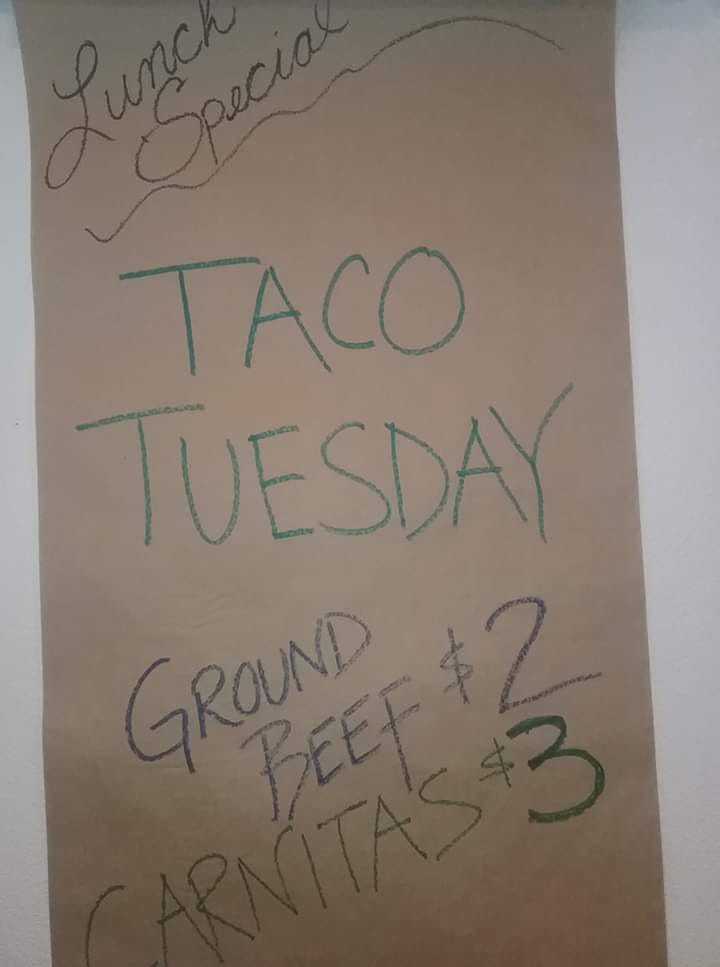 Lunch
Special
TACO
TUESDAY
GROUND
BEEF $2
CARNITAS $3